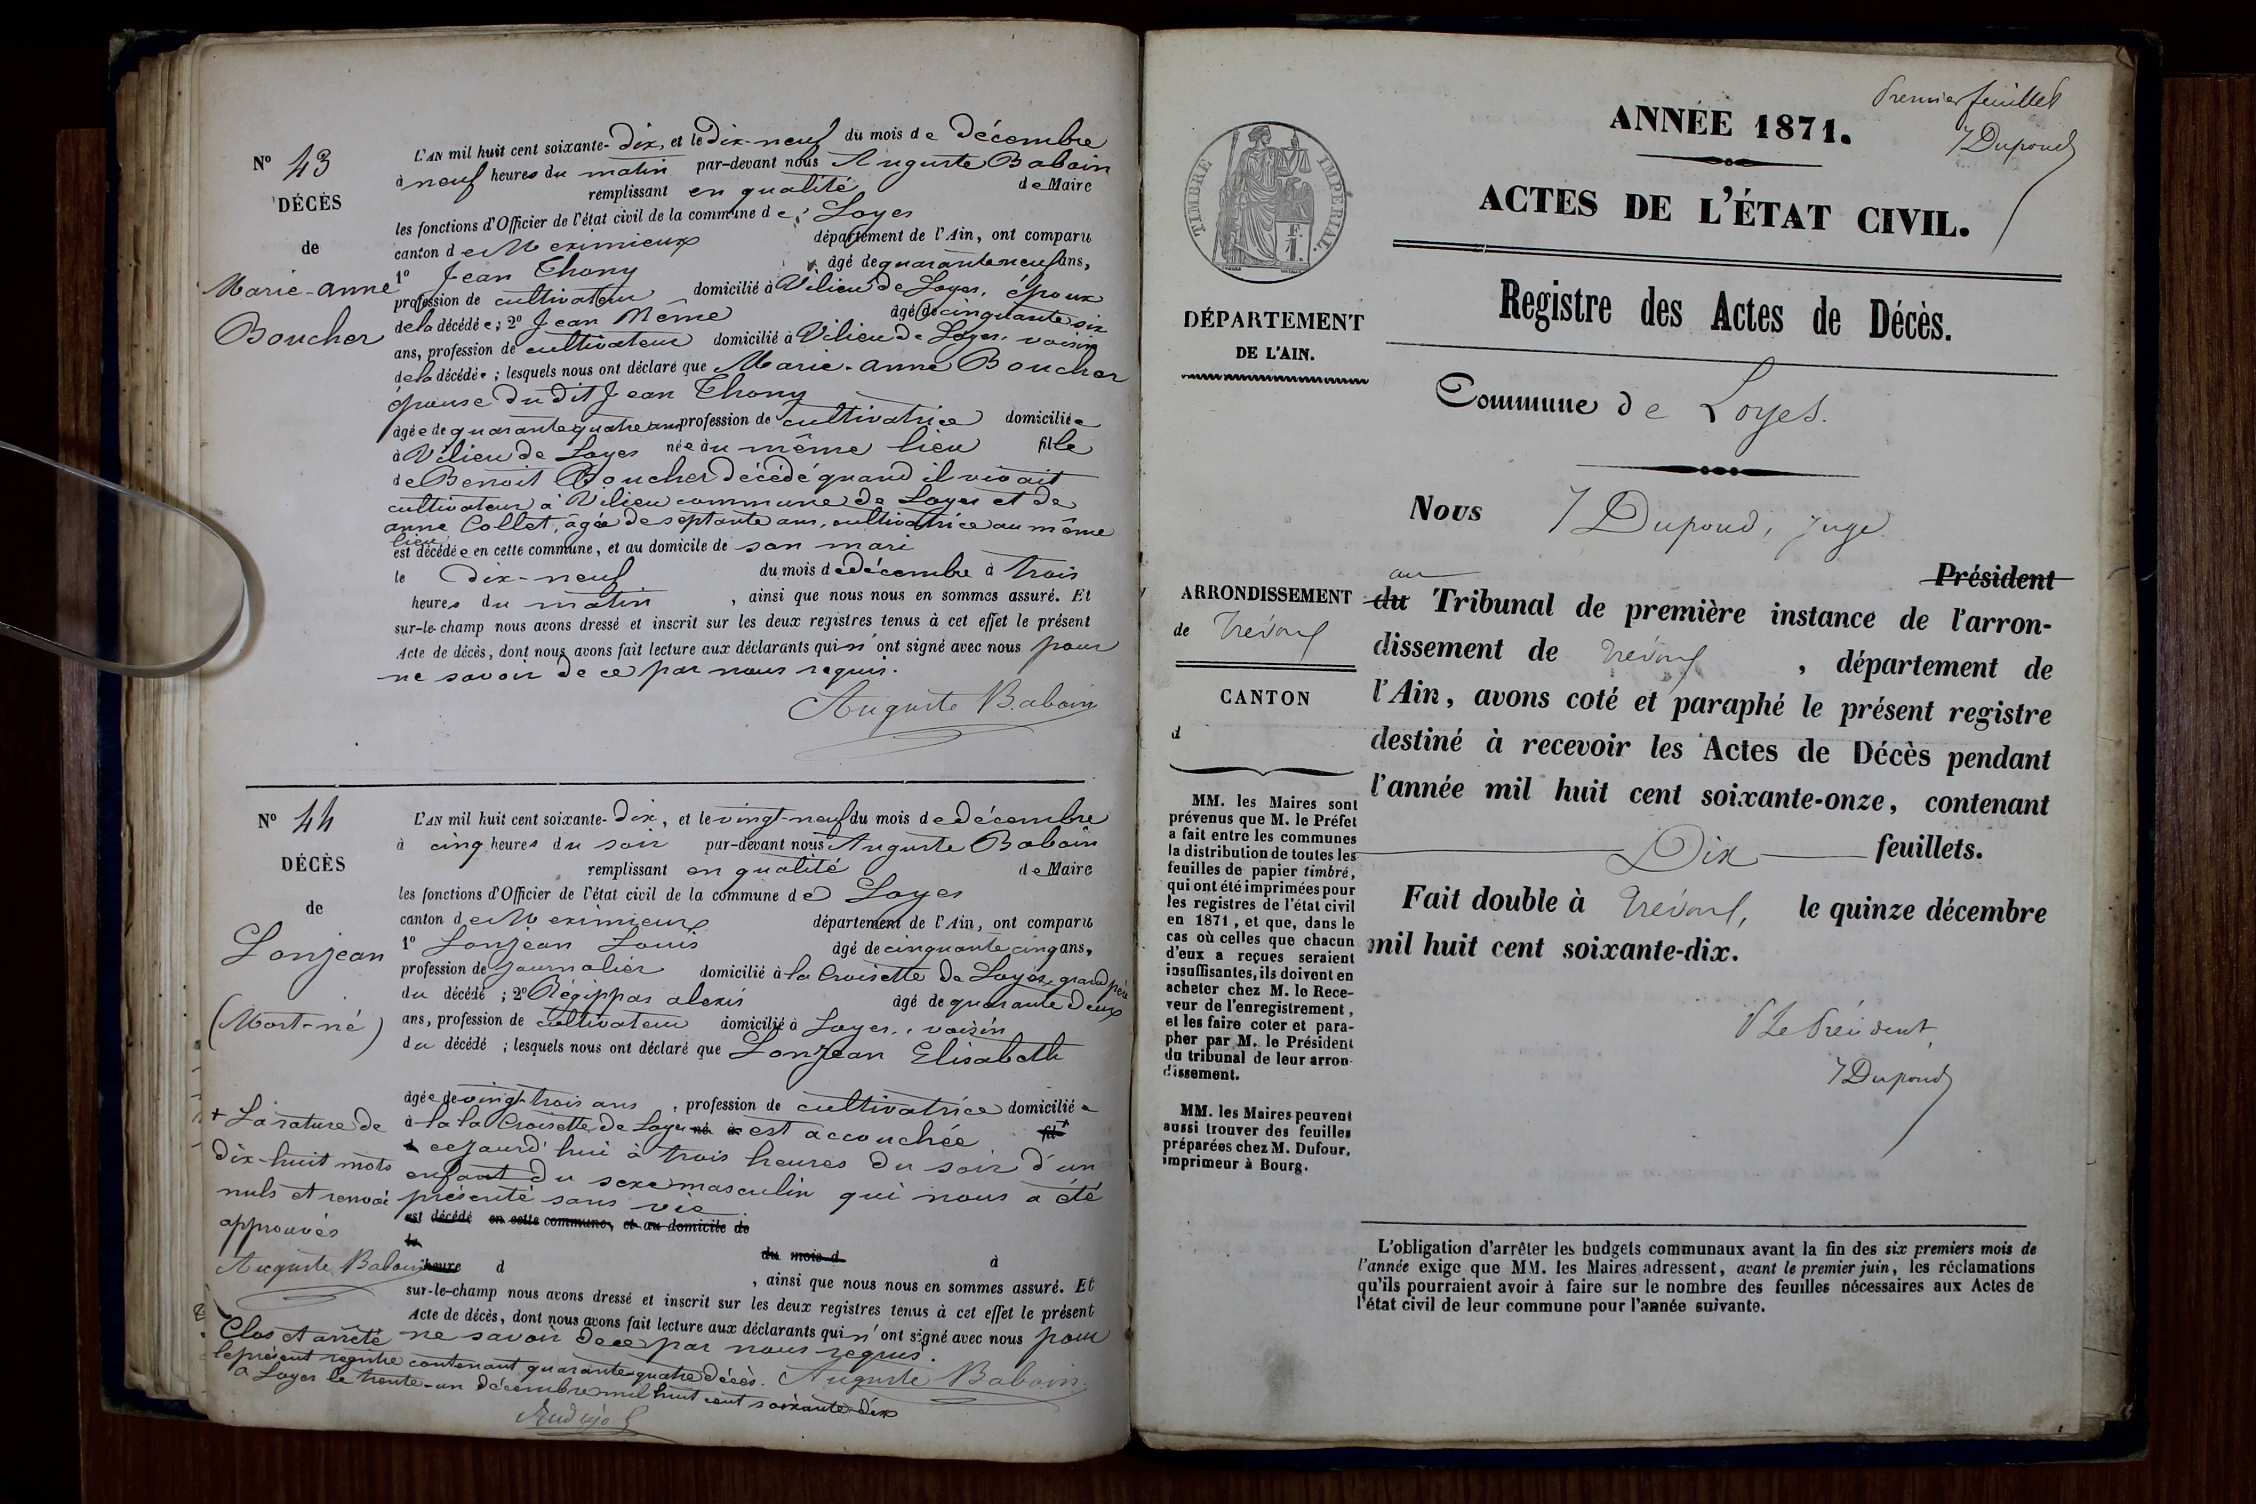 N° 43
DÉCÈS
de
Marie-anne
Boucher
L'AN mil huit cent soixante-Dix, et le Dix-neuf du mois de Décembre
à neuf heures du matin par-devant nous Auguste Baboin
remplissant en qualité de Maire
les fonctions d'Officier de l'état civil de la commune de Loyes
canton de Meximieux département de l'Ain, ont comparu
1° Jean Thony âgé de quarante neuf ans,
profession de cultivateur domicilié à Vilieu de Loyes, époux
de la décédée ; 2° Jean Même âgé de cinquante six
ans, profession de cultivateur domicilié à Vilieu de Loyes, voisin
de la décédée ; lesquels nous ont déclaré que Marie-anne Boucher
épouse du dit Jean Thony
âgée de quarante quatre ans profession de cultivatrice domiciliée
à Vilieu de Loyes née au même lieu fille
de Benoit Boucher décédé quand il vivait
cultivateur à Vilieu commune de Loyes et de
anne Collet, âgée de septante ans, cultivatrice au même
lieu
est décédée en cette commune, et au domicile de son mari
le dix-neuf du mois de décembre à trois
heures du matin , ainsi que nous nous en sommes assuré. Et
sur-le-champ nous avons dressé et inscrit sur les deux registres tenus à cet effet le présent
Acte de décès, dont nous avons fait lecture aux déclarants qui n'ont signé avec nous pour
ne savoir de ce par nous requis.
Auguste Baboin
N° 44
DÉCÈS
de
Lonjean
(Mort-né)
L'AN mil huit cent soixante-Dix, et le vingt-neuf du mois de décembre
à cinq heures du soir par-devant nous Auguste Baboin
remplissant en qualité de Maire
les fonctions d'Officier de l'état civil de la commune de Loyes
canton de Meximieux département de l'Ain, ont comparu
1° Lonjean Louis âgé de cinquante cinq ans,
profession de journalier domicilié à la Croisette de Loyes, grand père
du décédé ; 2° Régippas alexis âgé de quarante Deux
ans, profession de cultivateur domicilié à Loyes, voisin
du décédé ; lesquels nous ont déclaré que Lonjean Elisabeth
âgée de vingt-trois ans , profession de cultivatrice domiciliée
à la la Croisette de Loyes né à est accouchée fil
cejourd'hui à trois heures du soir d'un
enfant du sexe masculin qui nous a été
présenté sans vie
est décédé en cette commune, et au domicile de
le du mois d à
heure d , ainsi que nous nous en sommes assuré. Et
sur-le-champ nous avons dressé et inscrit sur les deux registres tenus à cet effet le présent
Acte de décès, dont nous avons fait lecture aux déclarants qui n'ont signé avec nous pour
ne savoir de ce par nous requis.
Auguste Baboin
+ La rature de
dix-huit mots
nuls et renvoi
approuvés
Auguste Baboin
Clos et arrêté
le présent registre contenant quarante quatre décès.
à Loyes le trente-un décembre mil huit cent soixante-dix
Premier feuillet
J Dupond
ANNÉE 1871.
ACTES DE L'ÉTAT CIVIL.
TIMBRE IMPÉRIAL.
F.
1.
Registre des Actes de Décès.
DÉPARTEMENT
DE L'AIN.
Commune de Loyes.
Nous J Dupond, juge
Président
au
du Tribunal de première instance de l'arron-
dissement de Trévoux , département de
l'Ain, avons coté et paraphé le présent registre
destiné à recevoir les Actes de Décès pendant
l'année mil huit cent soixante-onze, contenant
Dix feuillets.
Fait double à Trévoux, le quinze décembre
mil huit cent soixante-dix.
P Le Président
J Dupond
ARRONDISSEMENT
de Trévoux
CANTON
d
MM. les Maires sont
prévenus que M. le Préfet
a fait entre les communes
la distribution de toutes les
feuilles de papier timbré,
qui ont été imprimées pour
les registres de l'état civil
en 1871, et que, dans le
cas où celles que chacun
d'eux a reçues seraient
insuffisantes, ils doivent en
acheter chez M. le Rece-
veur de l'enregistrement,
et les faire coter et para-
pher par M. le Président
du tribunal de leur arron-
dissement.
MM. les Maires peuvent
aussi trouver des feuilles
préparées chez M. Dufour,
imprimeur à Bourg.
L'obligation d'arrêter les budgets communaux avant la fin des six premiers mois de
l'année exige que MM. les Maires adressent, avant le premier juin, les réclamations
qu'ils pourraient avoir à faire sur le nombre des feuilles nécessaires aux Actes de
l'état civil de leur commune pour l'année suivante.